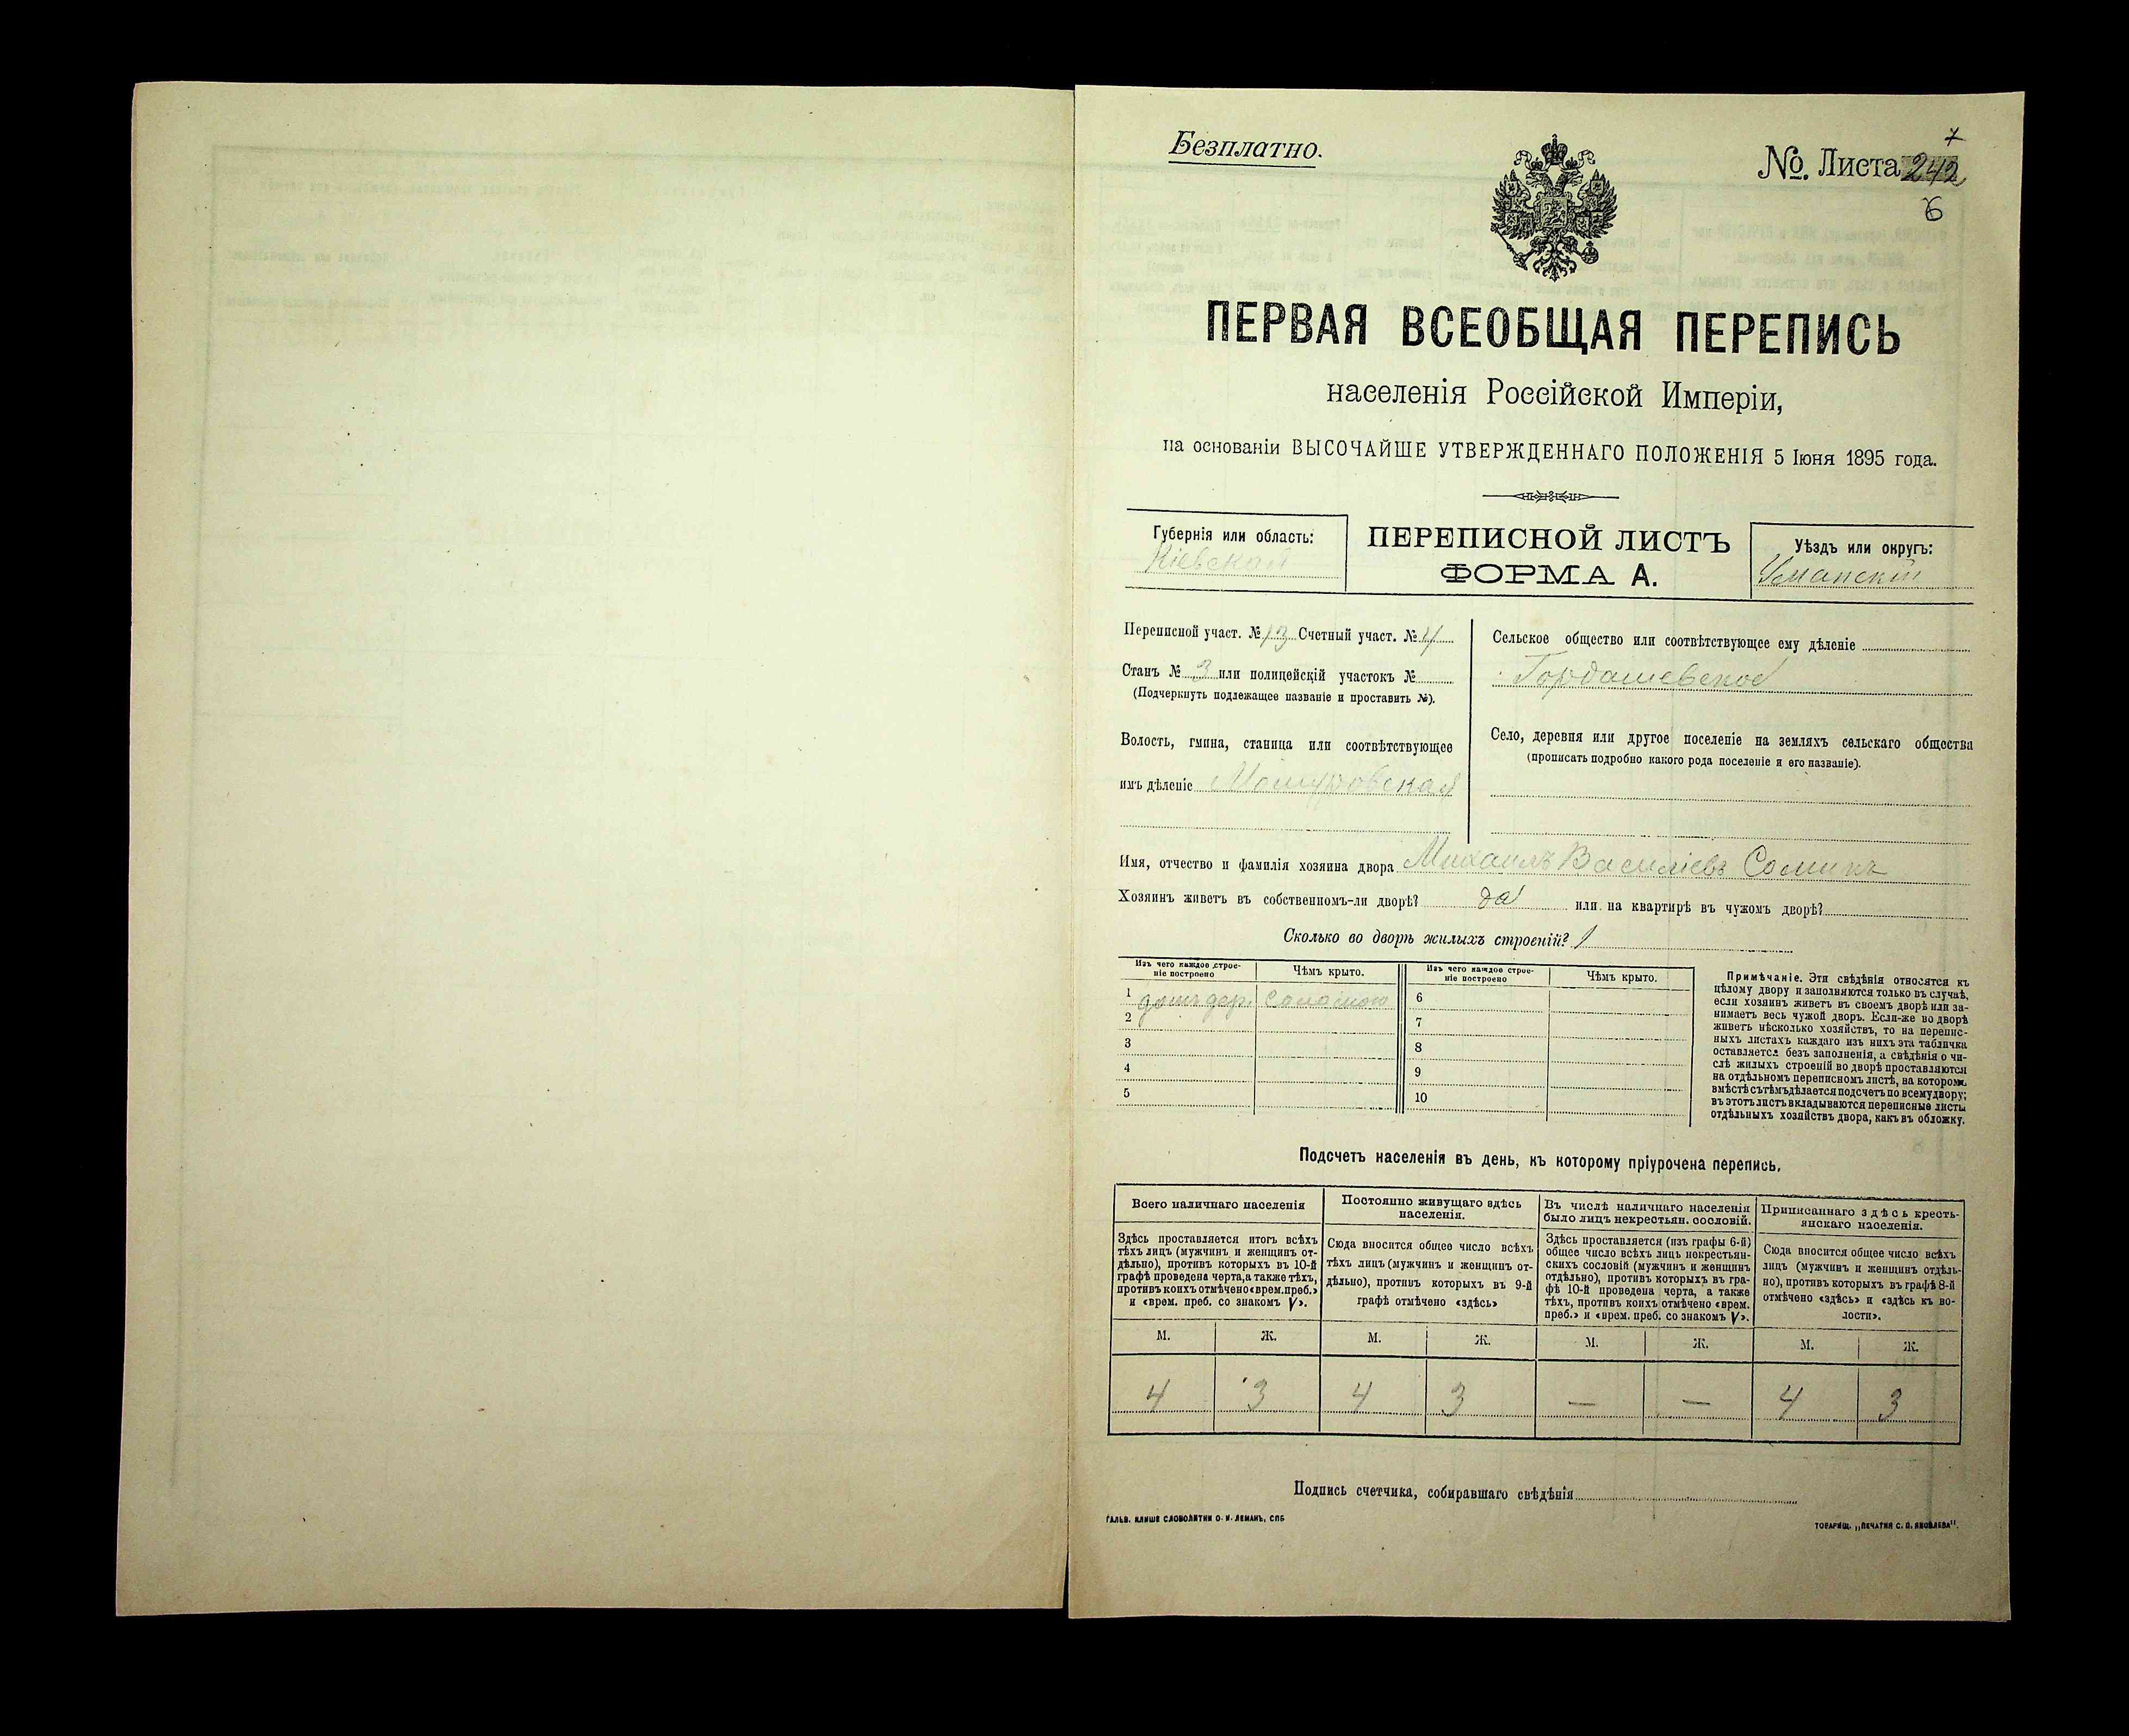 Безплатно.
№. Листа 242
7
6
ПЕРВАЯ ВСЕОБЩАЯ ПЕРЕПИСЬ
населенія Россійской Имперіи,
на основаніи ВЫСОЧАЙШЕ УТВЕРЖДЕННАГО ПОЛОЖЕНІЯ 5 Іюня 1895 года.
Губернія или область:
Кіевская
ПЕРЕПИСНОЙ ЛИСТЪ
ФОРМА А.
Уѣздъ или округъ:
Уманскій
Переписной участ. № 13 Счетный участ. № 4
Станъ № 3 или полицейскій участокъ №
(Подчеркнуть подлежащее названіе и проставить №).
Волость, гмина, станица или соотвѣтствующее
имъ дѣленіе Машуровская
Сельское общество или соотвѣтствующее ему дѣленіе
Гордашевское
Село, деревня или другое поселеніе на земляхъ сельскаго общества
(прописать подробно какого рода поселеніе и его названіе).
Имя, отчество и фамилія хозяина двора Михаилъ Василіевъ Соминъ
Хозяинъ живетъ въ собственномъ-ли дворѣ? да или на квартирѣ въ чужомъ дворѣ?
Сколько во дворѣ жилыхъ строеній? 1
Изъ чего каждое строе-
ніе построено
Чѣмъ крыто.
Изъ чего каждое строе-
ніе построено
Чѣмъ крыто.
1 домъ дер. Соломою
2
3
4
5
6
7
8
9
10
Примѣчаніе. Эти свѣдѣнія относятся къ
цѣлому двору и заполняются только въ случаѣ,
если хозяинъ живетъ въ своемъ дворѣ или за-
нимаетъ весь чужой дворъ. Если-же во дворѣ
живетъ нѣсколько хозяйствъ, то на перепис-
ныхъ листахъ каждаго изъ нихъ эта табличка
оставляется безъ заполненія, а свѣдѣнія о чи-
слѣ жилыхъ строеній во дворѣ проставляются
на отдѣльномъ переписномъ листѣ, на которомъ
вмѣстѣ съ тѣмъ дѣлается подсчетъ по всему двору;
въ этотъ листъ вкладываются переписные листы
отдѣльныхъ хозяйствъ двора, какъ въ обложку.
Подсчетъ населенія въ день, къ которому пріурочена перепись.
Всего наличнаго населенія
Здѣсь проставляется итогъ всѣхъ
тѣхъ лицъ (мужчинъ и женщинъ от-
дѣльно), противъ которыхъ въ 10-й
графѣ проведена черта, а также тѣхъ,
противъ коихъ отмѣчено «врем. преб.»
и «врем. преб. со знакомъ V».
Постоянно живущаго здѣсь
населенія.
Сюда вносится общее число всѣхъ
тѣхъ лицъ (мужчинъ и женщинъ от-
дѣльно), противъ которыхъ въ 9-й
графѣ отмѣчено «здѣсь»
Въ числѣ наличнаго населенія
было лицъ некрестьян. сословій.
Здѣсь проставляется (изъ графы 6-й)
общее число всѣхъ лицъ некрестьян-
скихъ сословій (мужчинъ и женщинъ
отдѣльно), противъ которыхъ въ гра-
фѣ 10-й проведена черта, а также
тѣхъ, противъ коихъ отмѣчено «врем.
преб.» и «врем. преб. со знакомъ V».
Приписаннаго здѣсь кресть-
янскаго населенія.
Сюда вносится общее число всѣхъ
лицъ (мужчинъ и женщинъ отдѣль-
но), противъ которыхъ въ графѣ 8-й
отмѣчено «здѣсь» и «здѣсь къ во-
лости».
М. Ж. М. Ж. М. Ж. М. Ж.
4 3 4 3 — — 4 3
Подпись счетчика, собиравшаго свѣдѣнія
ГАЛЬВ. КЛИШЕ СЛОВОЛИТНИ О. И. ЛЕМАНЪ, СПБ
ТОВАРИЩ. „ПЕЧАТНЯ С. П. ЯКОВЛЕВА".